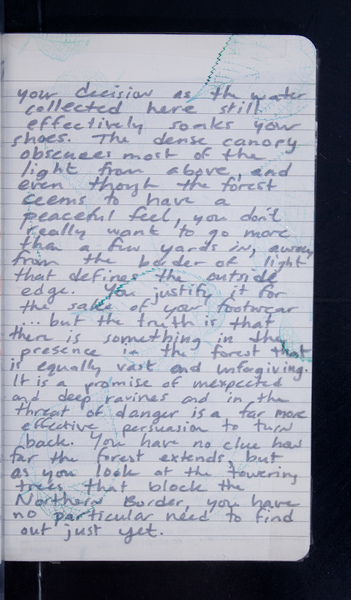 your decision as the water
collected here still
effectively soaks your
shoes. The dense canopy
obscures most of the
light from above, and
even though the forest
seems to have a
peaceful feel, you don't
really want to go more
than a few yards in, away
from the border of light
that defines the outside
edge. You justify it for
the sake of your footwear
... but the truth is that
there is something in the
presence in the forest that
is equally vast and unforgiving.
It is a promise of unexpected
and deep ravines and in the
threat of danger is a far more
effective persuasion to turn
back. You have no clue how
far the forest extends, but
as you look at the towering
trees that block the
Northern Border, you have
no particular need to find
out just yet.